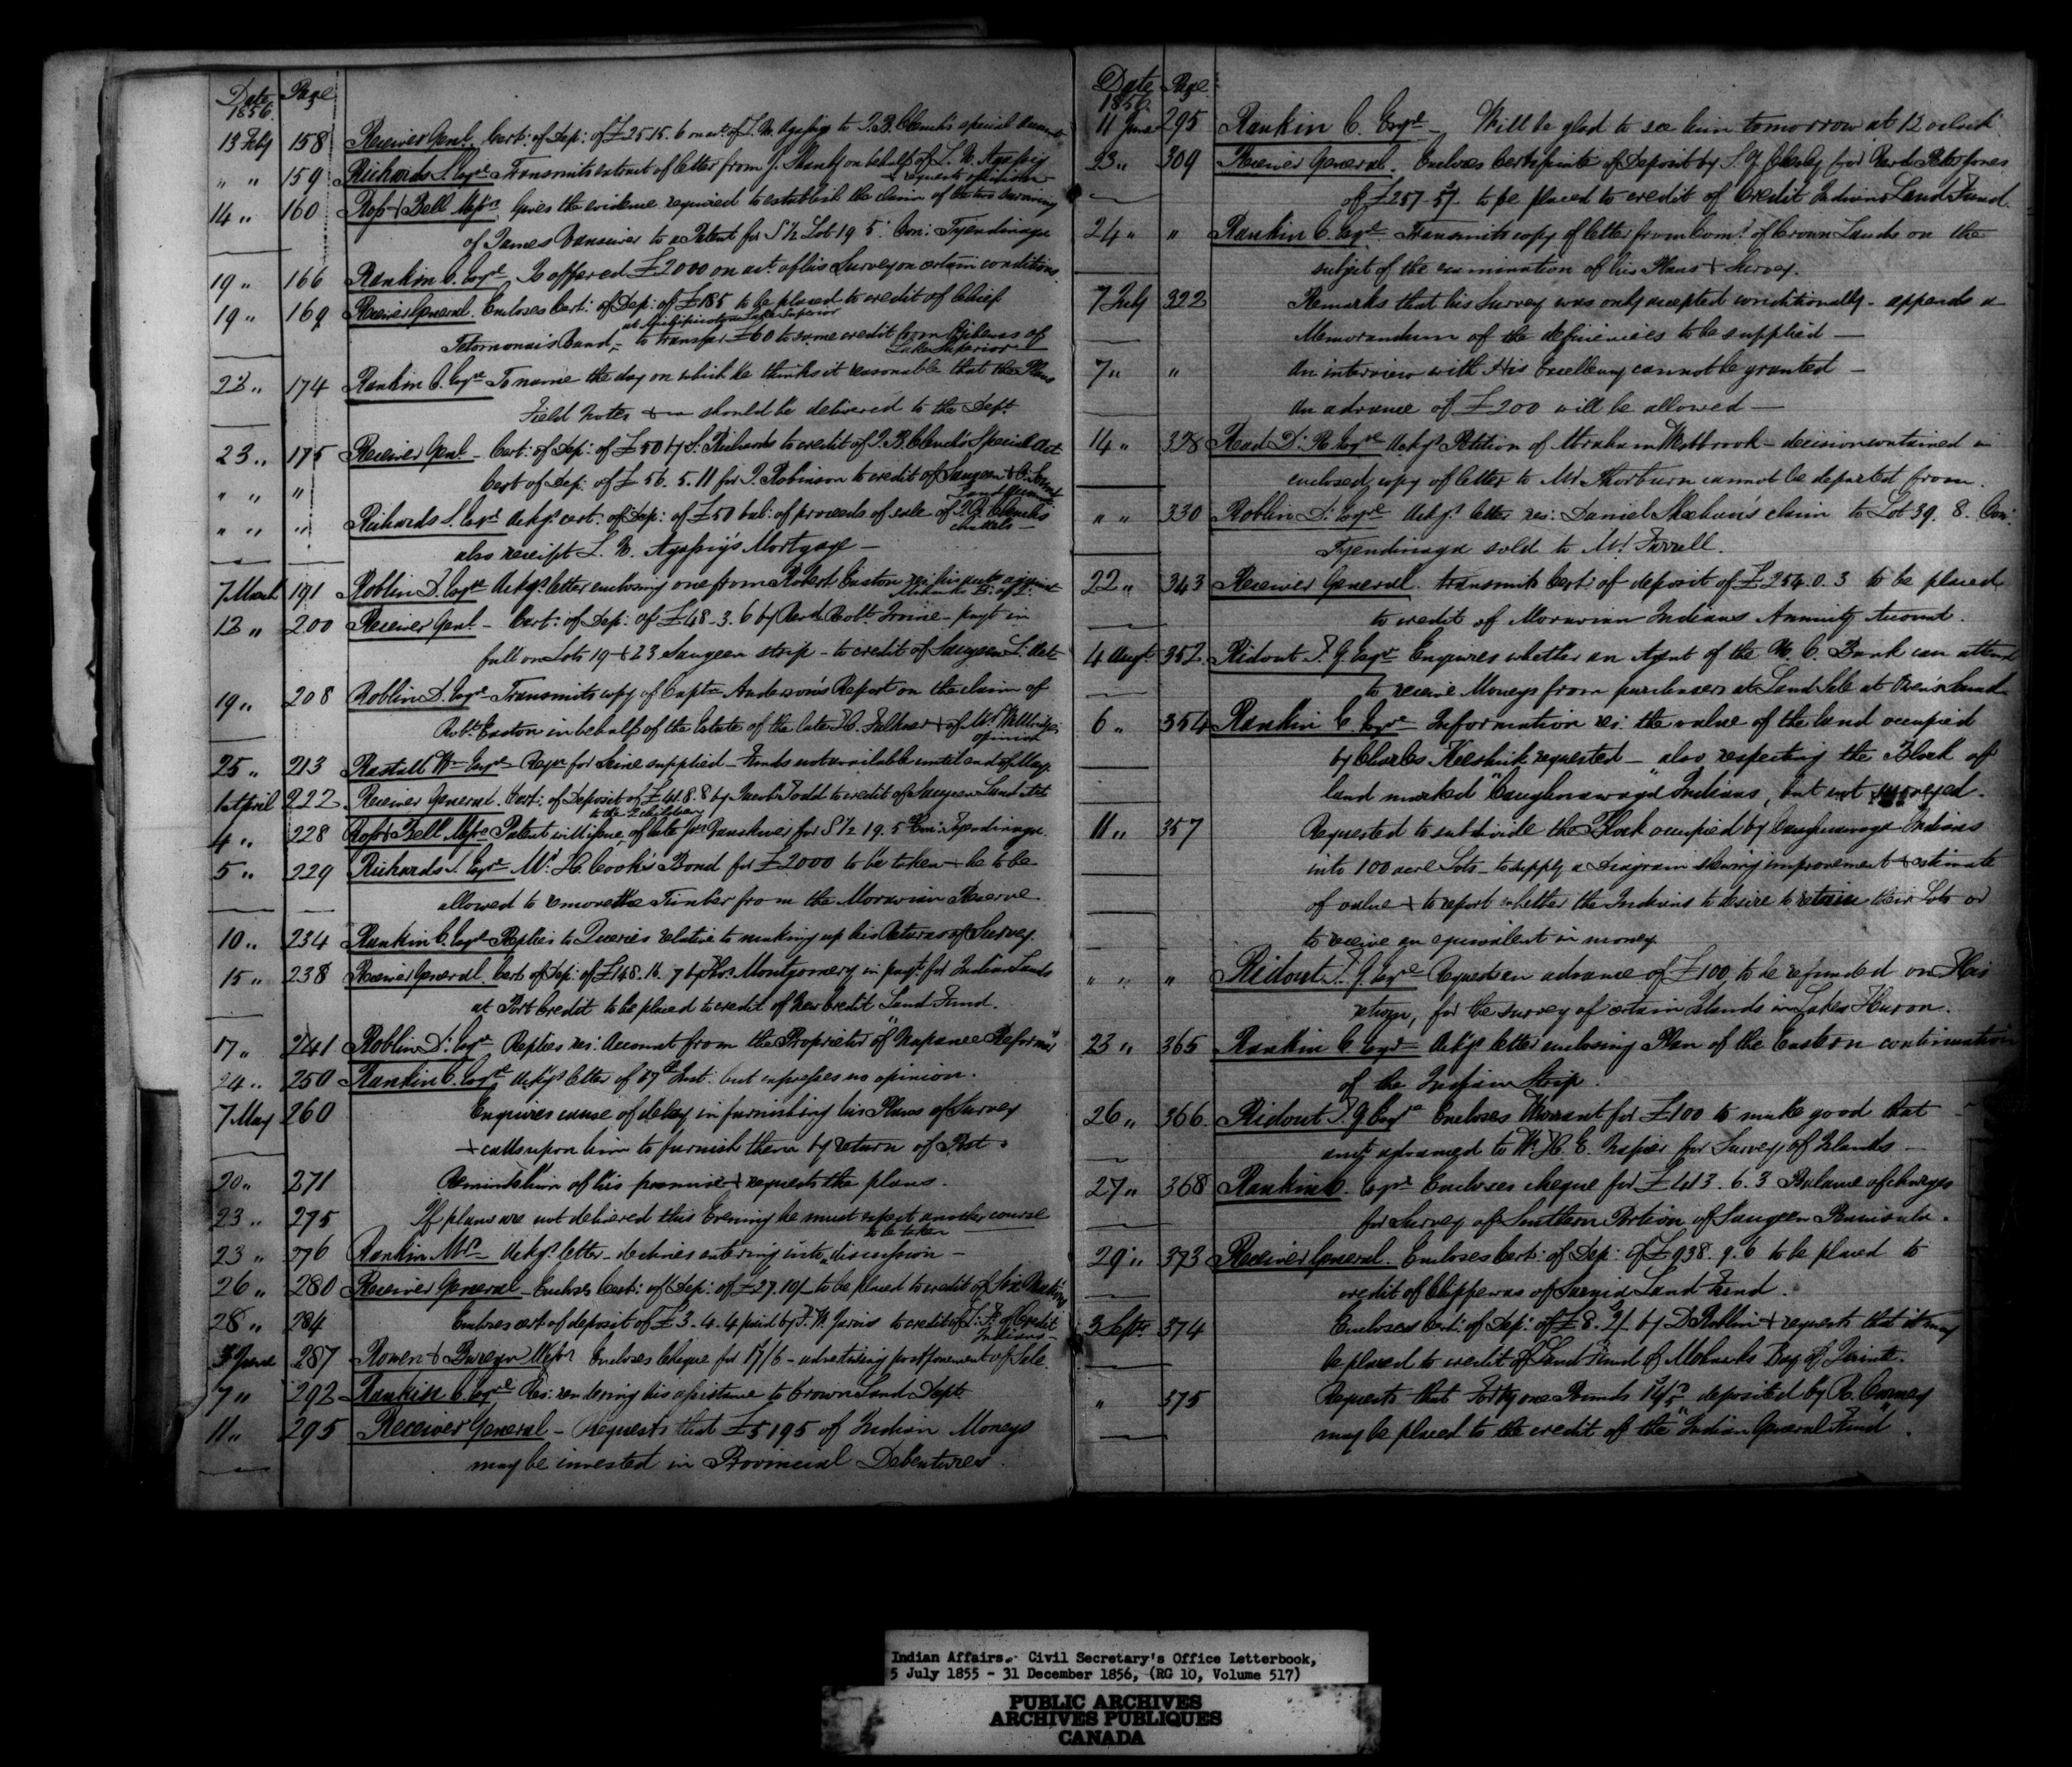 Date Page
1856.
13 Feby 158 Receiver Genl. Cert: of Dep: of £25.15.6 on act. of L. N. Agassiz to J. B. Clench's special Account
" " 159 Richards S. Esqre Transmits extract of letter from J. on behalf of L. N. Agassiz
& requests opinion
14 " 160 Ross & Bell Messrs. Gives the evidence required to establish the claim of the two surviving
of James Vansicer to a Patent for S ½ Lot 19 5: Con: Tyendinaga
19 " 166 Rankin C. Esqre Is offered £2000 on act. of his Survey on certain conditions
19 " 169 Receiver General. Encloses Cert: of Dep: of £185 to be placed to credit of Chief
at Michipicoton Lake Superior
Totomonais Band, - to transfer £60 to same credit from Chippewas of
Lake Superior
23 " 174 Rankin C. Esqre To name the day on which he thinks it reasonable that the Plans
Field Notes &c should be delivered to the Dept.
23 " 175 Receiver Genl. - Cert: of Dep: of £50 by S. Richards to credit of J. B. Clench's Special Act
" " " Cert of Dep: of £56.5.11 for T. Robinson to credit of Saugeen & O. Sound
Land
" " " Richards S. Esqre Ackgs cert. of Dep: of £50 bal: of proceeds of sale of J. B. Clench's
chattels -
also receipt L. N. Agassiz's Mortgage -
7 March 191 Roblin D. Esqre Ackgs letter enclosing one from Robert Easton re: his against
Mohawks B: of Q:
12 " 200 Receiver Genl - Cert: of Dep: of £48-3.6 by Revd. Robt. Irvine - payt in
full on Lots 19 & 23 Saugeen strip - to credit of Saugeen L: Act
19 " 208 Roblin D. Esqre Transmits copy of Captn. Anderson's Report on the claim of
Robt. Easton in behalf of the Estate of the late H. Falkner & of Mr.
opinion
25 " 213 Rastall Wm Esqre Reqn for Seine supplied - Funds not available until end of May
1st April 222 Receiver General. Cert: of Deposit of £41.8.8 by Jacob Todd to credit of Saugeen Land Act
to the 2 children
4 " 228 Ross & Bell Messrs Patent will issue, of late Jas Vansicer for S ½ 19. 5th Con: Tyendinaga.
5 " 229 Richards S. Esqre Mr. H. Cook's Bond for £2000 to be taken & he to be
allowed to remove the Timber from the Moravian Reserve
10 " 234 Rankin C. Esqre Replies to Queries relative to making up his Returns of Survey.
15 " 238 Receiver General. Cert of Dep: of £148.16.7 by Thos. Montgomery in payt. for Indian Lands
at Port Credit to be placed to credit of New Credit Land Fund.
17 " 241 Roblin D: Esqre Replies res: Account from the Proprietor of "Napanee Reformer"
24 " 250 Rankin C. Esqre Ackgs letter of 17th Inst: but expresses no opinion.
7 May 260 Enquires cause of delay in furnishing his Plans of Survey
& calls upon him to furnish them by return of Post.
20 " 271 Reminds him of his promise & requests the plans.
23 " 275 If plans are not delivered this Evening he must expect another course
to be taken
23 " 276 Rankin Mr. Ackgs letter - declines entering into discussion -
26 " 280 Receiver General - Encloses Cert: of Dep: of £27.10/- to be placed to credit of Six Nations
28 " 284 Encloses cert of deposit of £3.4.4 paid by F. W. Jarvis to credit of L: F: of Credit
Indians -
3 June 287 Rowen & Messrs Encloses Cheque for 17/6 - advertising postponement of Sale
7 " 292 Rankin C. Esqre Res: rendering his assistance to Crown Land Dept.
11 " 295 Receiver General - Requests that £5195 of Indian Moneys
may be invested in Provincial Debentures.
Date Page
1856.
11 June 295 Rankin C. Esqre - Will be glad to see him tomorrow at 12 oclock
23 " 309 Receiver General. Encloses Certificate of Deposit by S. Y. Chesley for Revd. Peter Jones
of £257-5/- to be placed to credit of Credit Indians Land Fund.
24 " " Rankin C. Esqre Transmits copy of letter from Comr. of Crown Lands on the
subject of the examination of his Plans & Survey.
7 July 322 Remarks that his Survey was only accepted conditionally - appends a
Memorandum of the deficiencies to be supplied -
7 " " An interview with His Excellency cannot be granted -
An advance of £200 will be allowed -
14 " 328 Read D: R. Esqre Ackgs Petition of Abraham Westbrook - decision contained in
enclosed copy of letter to Mr Thorburn cannot be departed from.
" " 330 Roblin D: Esqre Ackgs letter res: Daniel Sheehan's claim to Lot 39. 8. Con:
Tyendinaga sold to Mr. Farrell.
22 " 343 Receiver General. Transmits Cert: of deposit of £254.0.3 to be placed
to credit of Moravian Indians Annuity Account.
4 Augt. 352 Ridout T. G. Esqre Enquires whether an Agent of the U. C. Bank can attend
to receive Moneys from purchasers at Land Sale at Owen's Sound
6 " 354 Rankin C. Esqre Information res: the value of the land occupied
by Charles Keeshick requested - also respecting the Block of
land marked "Caughnawaga Indians", but not surveyed.
11 " 357 Requested to subdivide the Block occupied by Caughnawaga Indians
into 100 acre Lots - to supply a Diagram shewing improvement & estimate
of value & to report whether the Indians to desire to retain their Lots or
to receive an equivalent in money
" " " Ridout T. G. Esqre Requests an advance of £100, to be refunded on His
return, for the survey of certain Islands in Lake Huron.
23 " 365 Rankin C. Esqre Ackgs letter enclosing Plan of the Eastern continuation
of the Indian Strip.
26 " 366 Ridout T. G. Esqre Encloses Warrant for £100 to make good that
amt. advanced to W. H. E. Napier for Survey of Islands -
27 " 368 Rankin C. Esqre Encloses cheque for £413.6.3 Balance of charges
for Survey of Southern Portion of Saugeen Peninsula.
29 " 373 Receiver General. Encloses Cert: of Dep: of £938.9.6 to be placed to
credit of Chippewas of Sarnia Land Fund.
3 Septr. 374 Encloses Cert: of Dep: of £8. by D Roblin & requests that it may
be placed to credit of Land Fund of Mohawks Bay of Quinte.
" 375 Requests that Forty one Pounds deposited by R.
may be placed to the credit of the "Indian General Fund".
Indian Affairs. Civil Secretary's Office Letterbook,
5 July 1855 - 31 December 1856, (RG 10, Volume 517)
PUBLIC ARCHIVES
ARCHIVES PUBLIQUES
CANADA